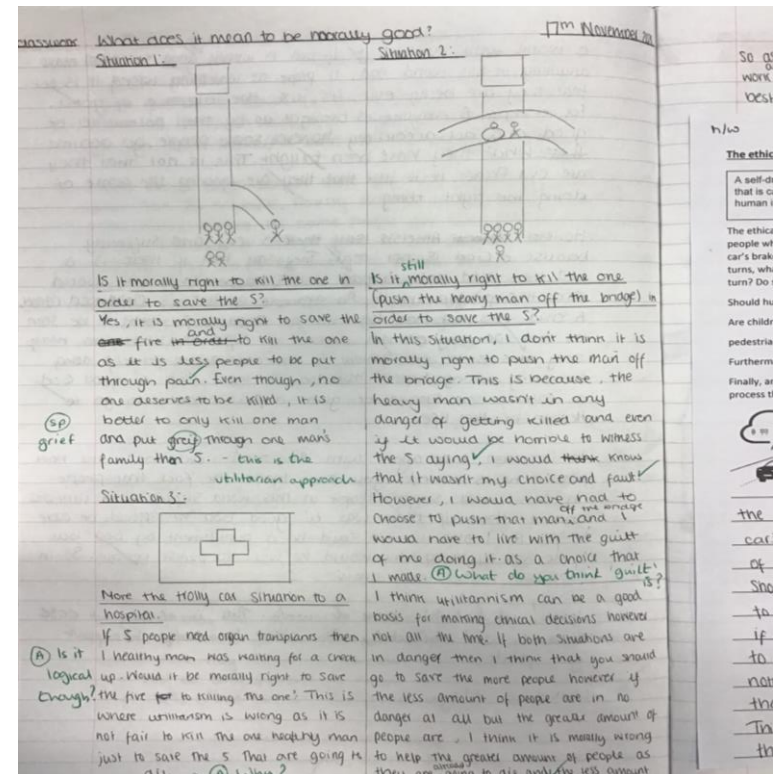 classwork What does it mean to be morally good? 17th November
Situation 1:
Is it morally right to kill the one in
order to save the 5?
Yes, it is morally right to save the
one five in order and to kill the one
as it is less people to be put
through pain. Even though, no
one deserves to be killed, it is
better to only kill one man
and put greif through one man's
family than 5. - this is the
utilitarian approach
sp
grief
Situation 3:
More the trolly car situation to a
hospital.
If 5 people need organ transplants then
1 healthy man was waiting for a check
up. Would it be morally right to save
the five for to killing the one? This is
where utilitarianism is wrong as it is
not fair to kill the one healthy man
just to save the 5 that are going to
A Is it
logical
though?
Situation 2:
Is it still morally right to kill the one
(push the heavy man off the bridge) in
order to save the 5?
In this situation, I don't think it is
morally right to push the man off
the bridge. This is because, the
heavy man wasn't in any
danger of getting killed and even
if it would be horrible to witness
the 5 dying, I would think know
that it wasn't my choice and fault
However, I would have had to
choose to push that man off the bridge and I
would have to live with the guilt
of me doing it as a choice that
I made. A What do you think 'guilt'
is?
I think utilitannism can be a good
basis for making ethical decisions however
not all the time. If both situations are
in danger then I think that you should
go to save the more people however if
the less amount of people are in no
danger at all but the greater amount of
people are, I think it is morally wrong
to help the greater amount of people as
they are already going to die and the less amount
So
work
best
h/w
The ethic
A self-dr
that is c
human i
The ethica
people wh
car's brak
turns, wha
turn? Do
Should hu
Are childr
pedestria
Furtherm
Finally, ar
process t
the
car
of
Sho
to
if
to
not
the
Th
th